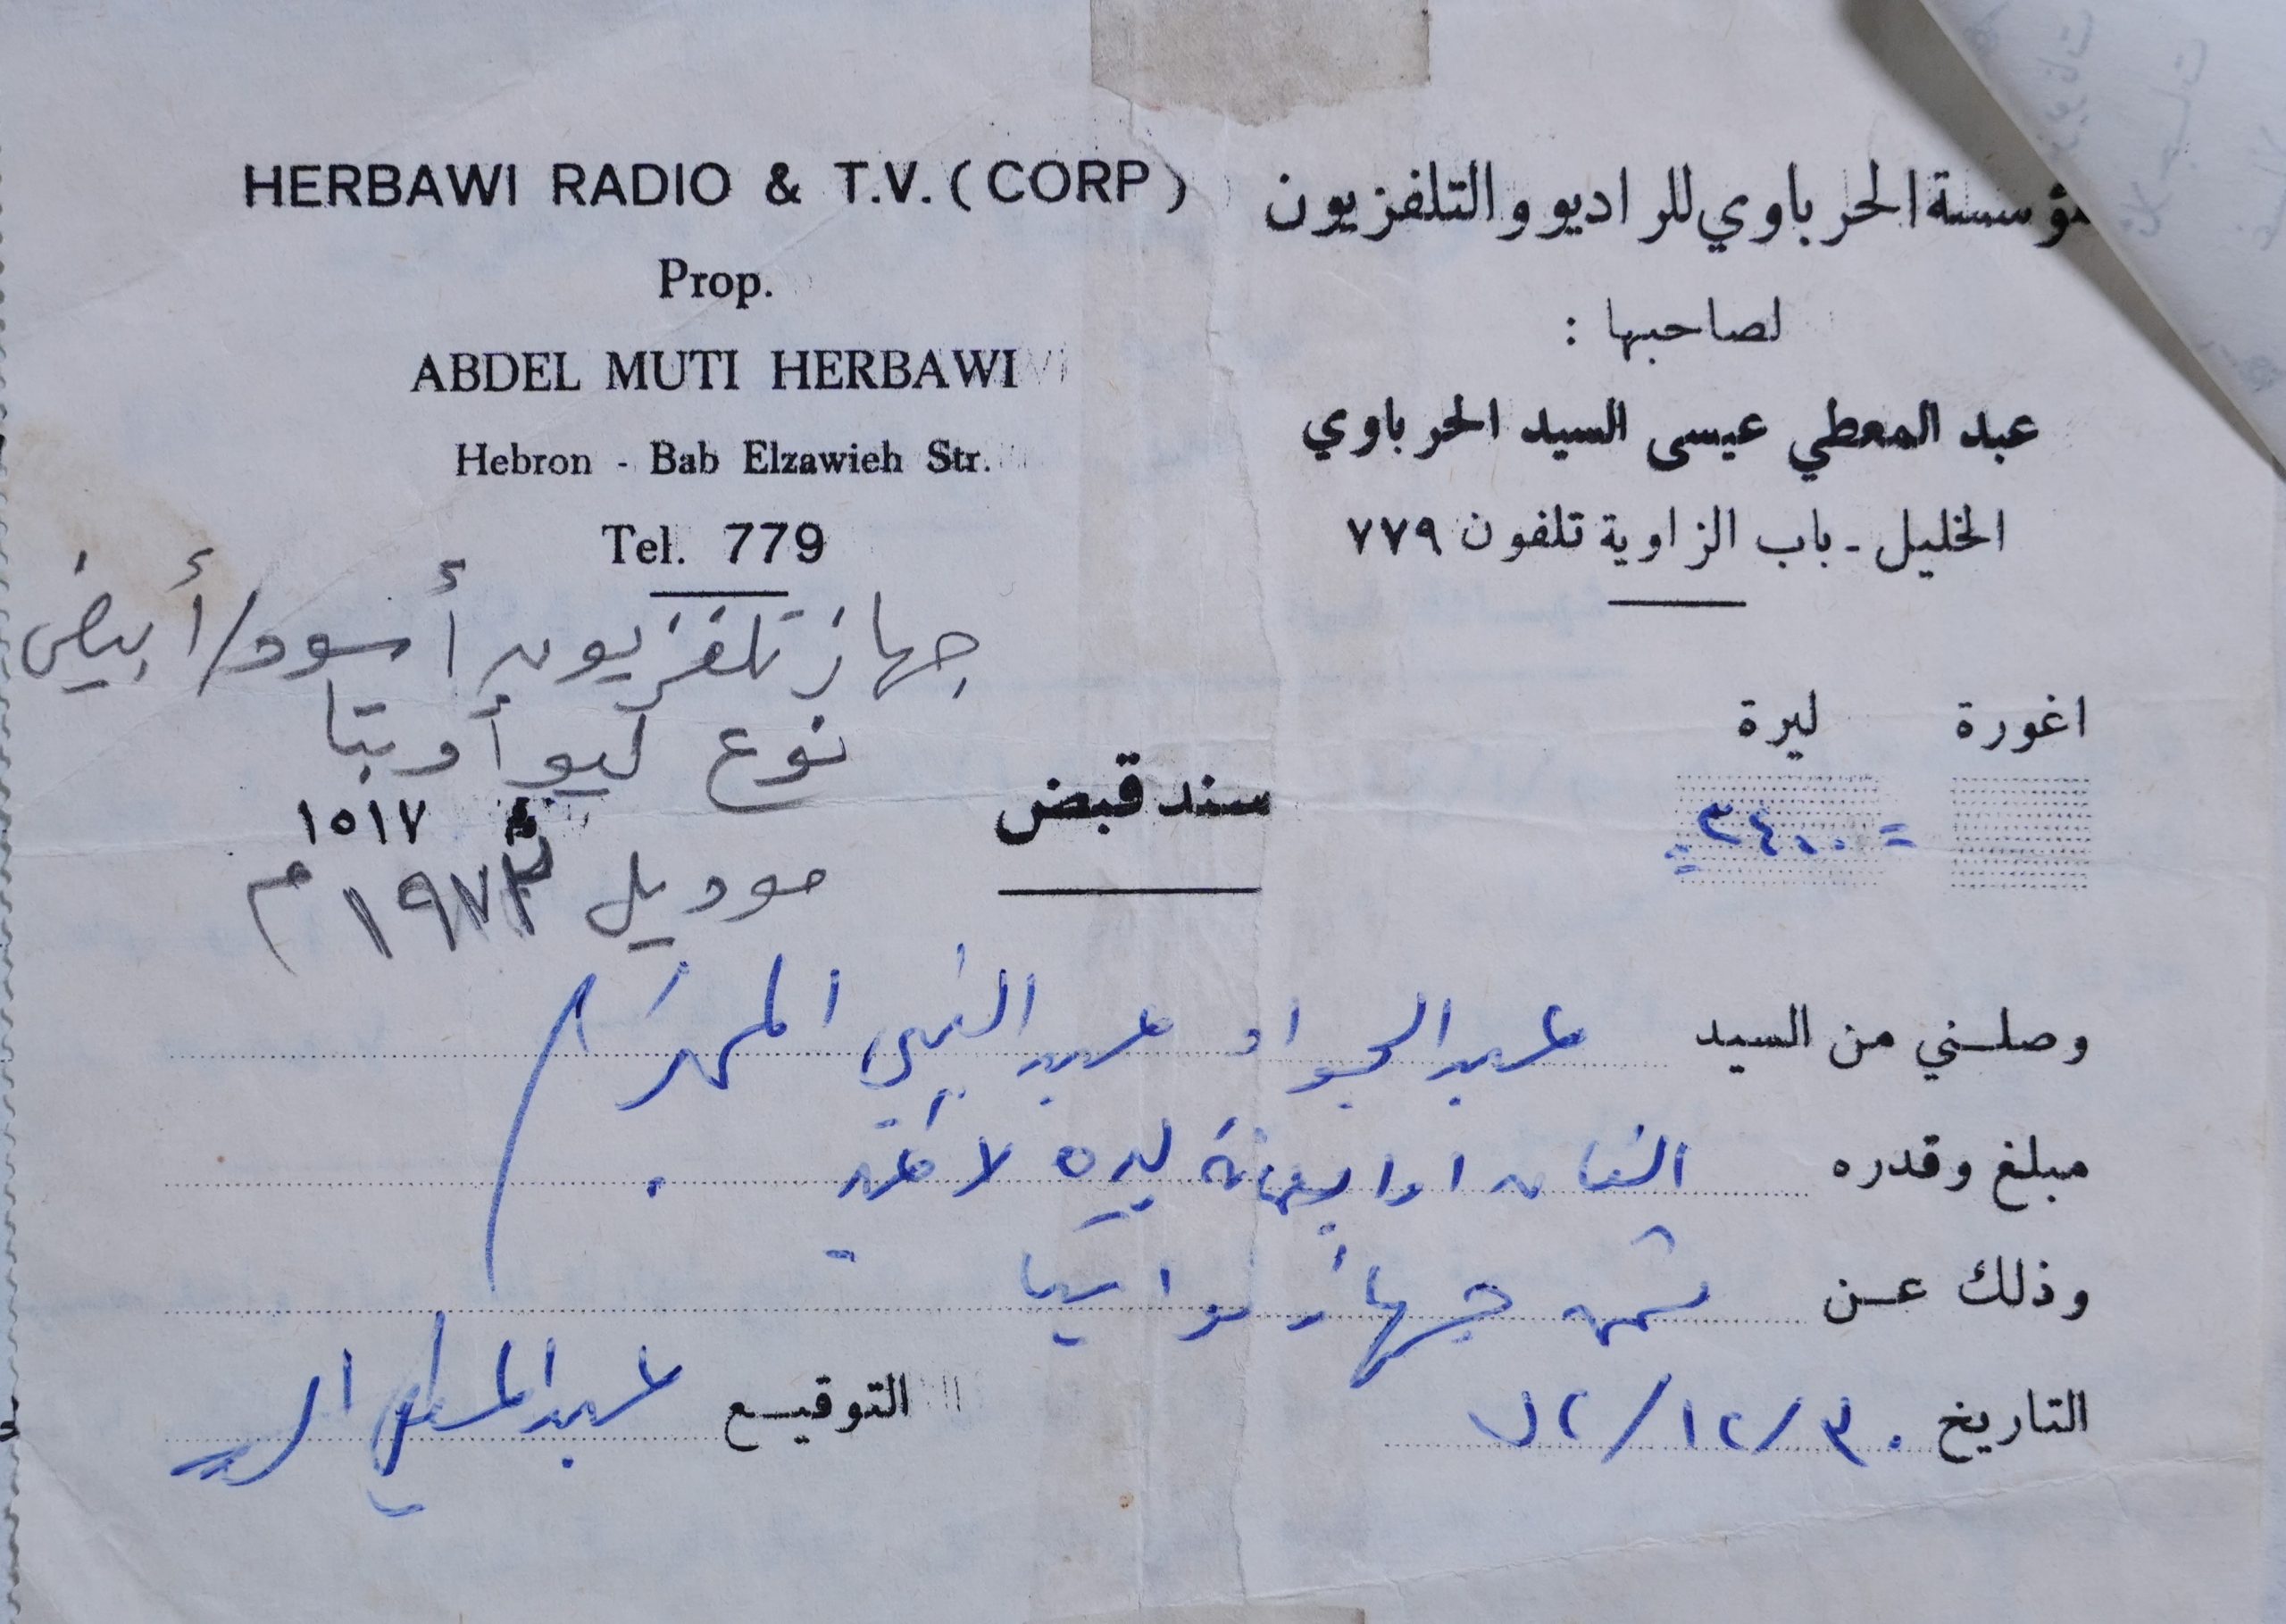 HERBAWI RADIO & T.V. (CORP)
Prop.
ABDEL MUTI HERBAWI
Hebron - Bab Elzawieh Str.
Tel. 779
مؤسسة الحرباوي للراديو والتلفزيون
لصاحبها :
عبد المعطي عيسى السيد الحرباوي
الخليل - باب الزاوية تلفون ٧٧٩
جهاز تلفزيون أسود/أبيض
نوع كيو أو بتا
موديل ١٩٧٢م
اغورة ليرة
=٢٤٠٠=
سند قبض
١٥١٧
وصلني من السيد عبد الجواد عبد النبي المهتر
مبلغ وقدره الفان اربعمائة ليرة لا غير
وذلك عن ثمن جهاز
التاريخ ٣٠/١٢/٧٢
التوقيع عبد المعطي